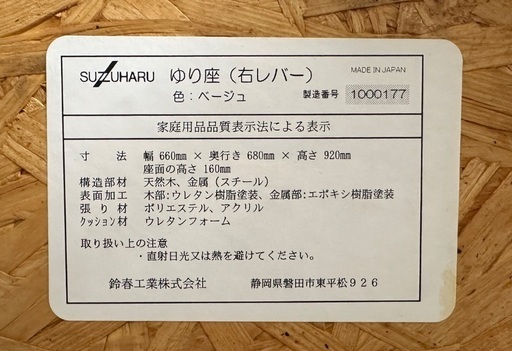 SUZUHARU ゆり座（右レバー） MADE IN JAPAN
色：ベージュ 製造番号 1000177
家庭用品品質表示法による表示
寸法 幅 660mm × 奥行き 680mm × 高さ 920mm
座面の高さ 160mm
構造部材 天然木、金属（スチール）
表面加工 木部：ウレタン樹脂塗装、金属部：エポキシ樹脂塗装
張り材 ポリエステル、アクリル
クッション材 ウレタンフォーム
取り扱い上の注意
・直射日光又は熱を避けてください。
鈴春工業株式会社 静岡県磐田市東平松９２６